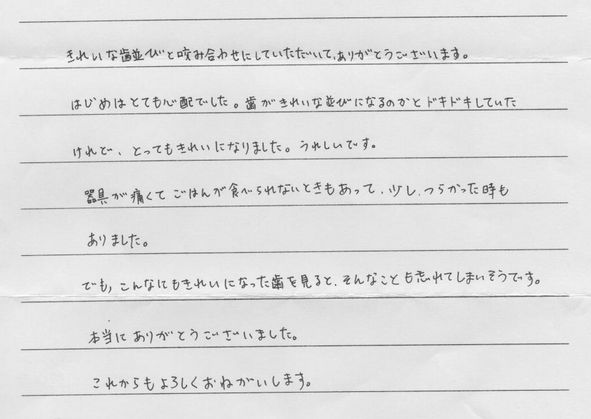 きれいな歯並びと咬み合わせにしていただいて、ありがとうございます。
はじめはとても心配でした。歯がきれいな並びになるのかとドキドキしていた
けれど、とってもきれいになりました。うれしいです。
器具が痛くてごはんが食べられないときもあって、少し、つらかった時も
ありました。
でも、こんなにもきれいになった歯を見ると、そんなことも忘れてしまいそうです。
本当にありがとうございました。
これからもよろしくおねがいします。